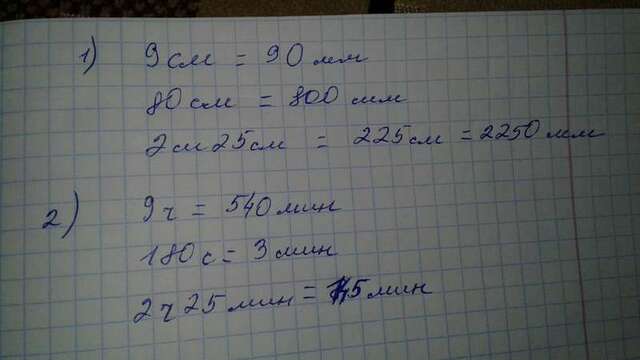 1) 9 см = 90 мм
80 см = 800 мм
2 м 25 см = 225 см = 2250 мм
2) 9 ч = 540 мин
180 с = 3 мин
2 ч 25 мин = 145 мин